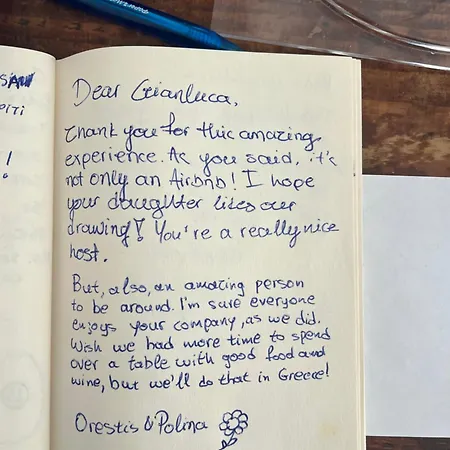 Dear Gianluca,
Thank you for this amazing
experience. As you said, it's
not only an Airbnb! I hope
your daughter likes our
drawing! You're a really nice
host.
But, also, an amazing person
to be around. I'm sure everyone
enjoys your company, as we did.
Wish we had more time to spend
over a table with good food and
wine, but we'll do that in Greece!
Orestis & Polina